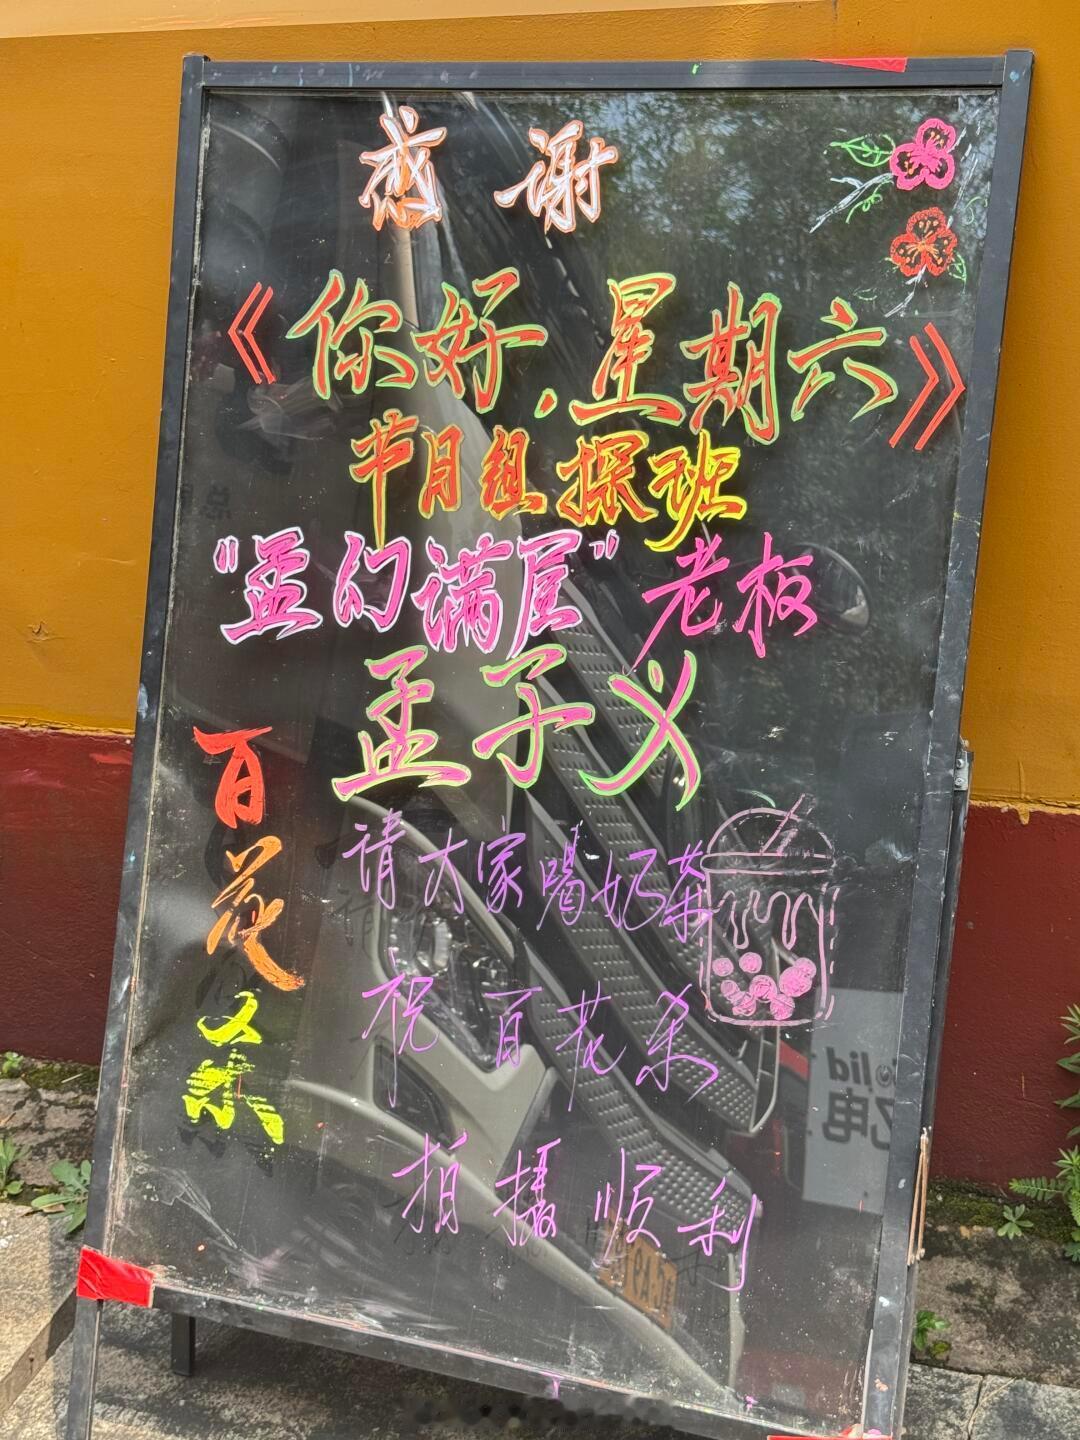 感谢
《你好.星期六》
节目组探班
"孟幻满屋"老板
孟子义
百花杀
请大家喝奶茶
祝百花杀
拍摄顺利